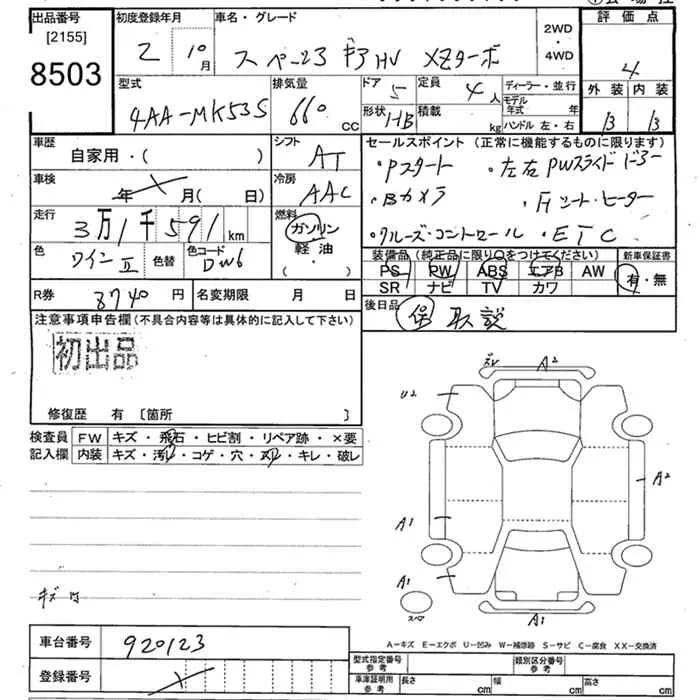 出品番号 初度登録年月 車名・グレード 2WD・4WD 評価点
[2155]
8503
2 10月 スペーシア ギア HV XZターボ 4
型式 排気量 ドア 5 定員 4人 ディーラー・並行 外装 内装
4AA-MK53S 660cc 形状 HB 積載 kg モデル年式 年 ハンドル 左・右 B B
車歴 自家用・( ) シフト AT セールスポイント (正常に機能するものに限ります)
・Pスタート ・左右PWスライドドアー
車検 年 月( 日) 冷房 AAC ・Bカメラ ・シート・ヒーター
走行 3万1千591km 燃料 ガソリン 軽油・( ) ・クルーズ・コントロール ・ETC
色 ワインⅡ 色替 色コード DW6
装備品 (純正品に限り○をつけてください) 新車保証書
PS PW ABS エアB AW 有・無
SR ナビ TV カワ
R券 8740円 名変期限 月 日
後日品 保 取説
注意事項申告欄(不具合内容等は具体的に記入して下さい)
初出品
修復歴 有 〔箇所 〕
検査員記入欄 FW キズ・飛石・ヒビ割・リペア跡・×要
内装 キズ・汚レ・コゲ・穴・スレ・キレ・破レ
キズ 内
A2
U2
A2
A1
A1
A1
スペア
車台番号 920123
登録番号
A-キズ E-エクボ U-凹み W-補修跡 S-サビ C-腐食 XX-交換済
型式指定番号 参考 類別区分番号 参考
車庫証明用 参考 長さ cm 幅 cm 高さ cm